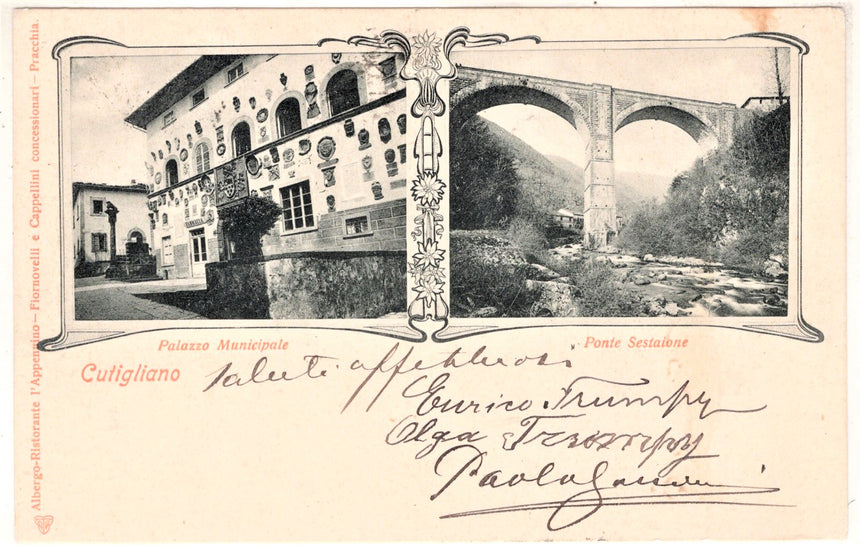 Albergo-Ristorante l'Appennino – Fiornovelli e Cappellini concessionari – Pracchia.
Palazzo Municipale
Ponte Sestaione
Cutigliano
saluti
Enrico Trumpy
Olga Trumpy
Paolo